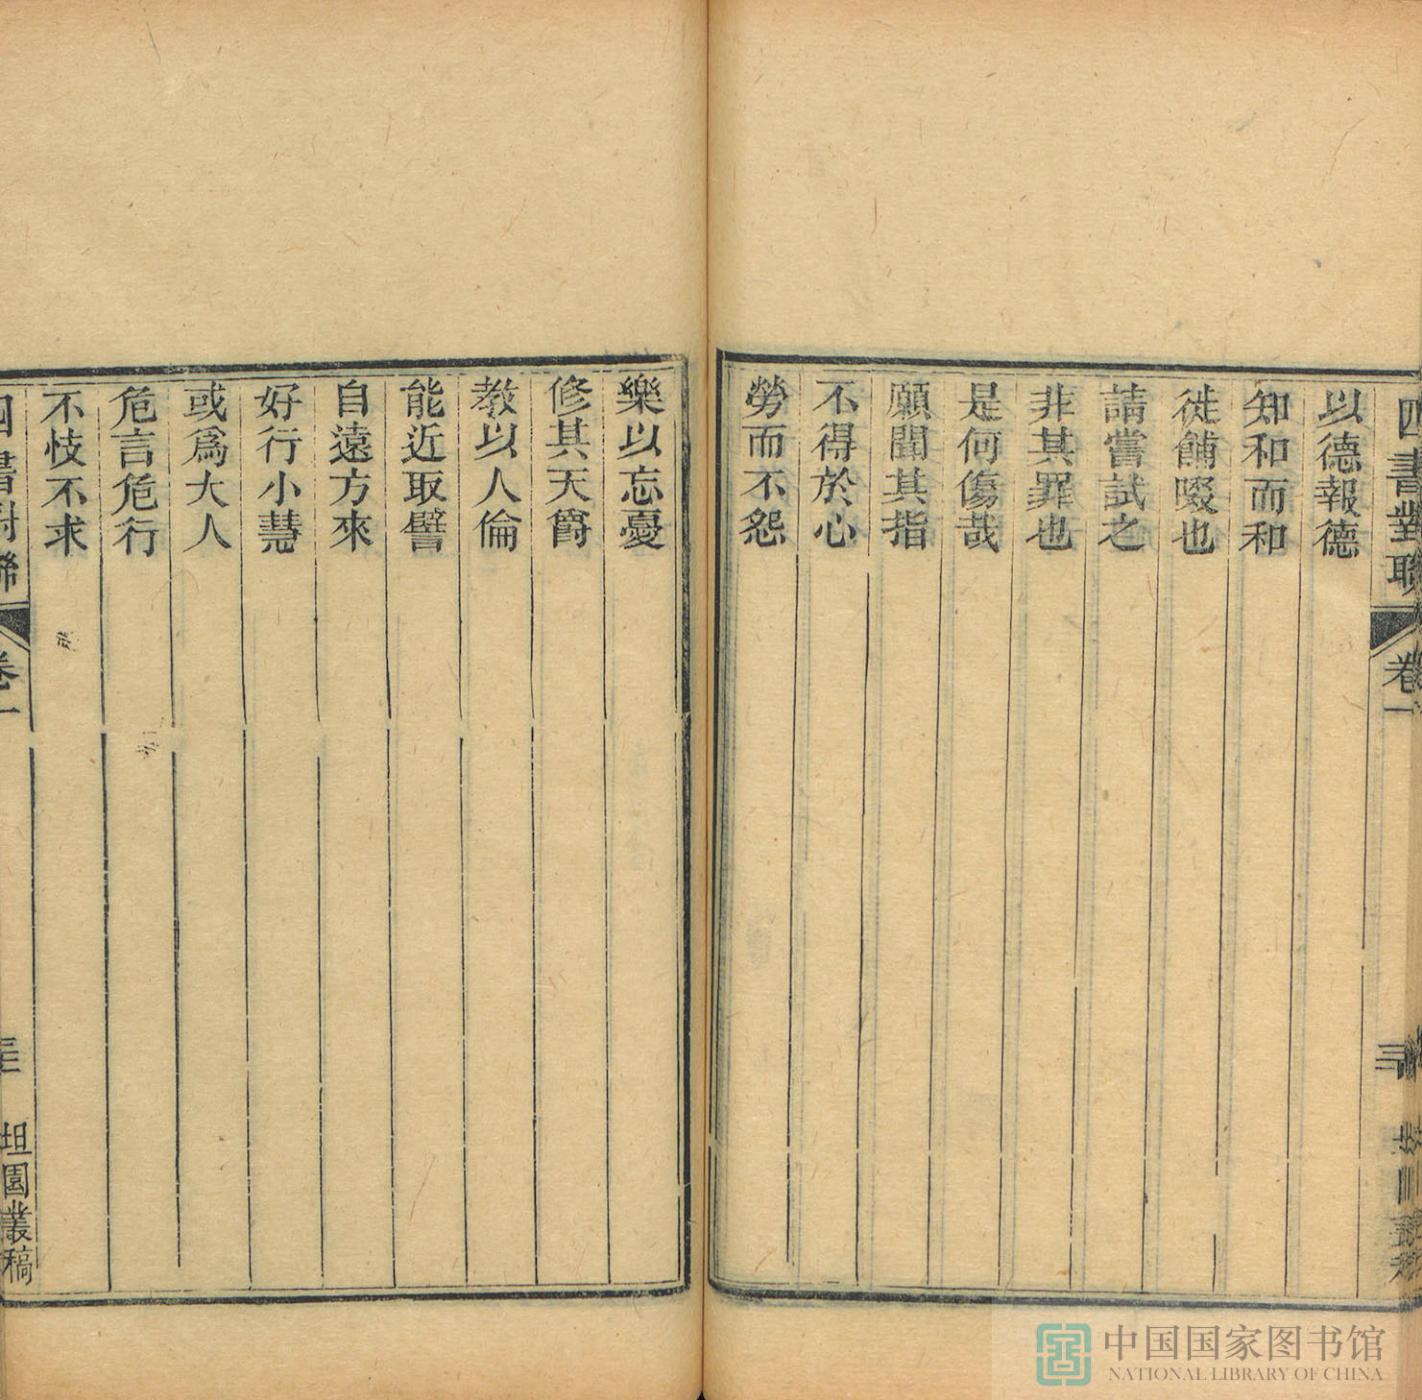 四書對聯 卷一 三
以德報德
知和而和
徙餔啜也
請嘗試之
非其罪也
是何傷哉
願聞其指
不得於心
勞而不怨
樂以忘憂
修其天爵
教以人倫
能近取譬
自遠方來
好行小慧
或爲大人
危言危行
不忮不求
四書對聯 卷一
坦園叢稿
中国国家图书馆
NATIONAL LIBRARY OF CHINA